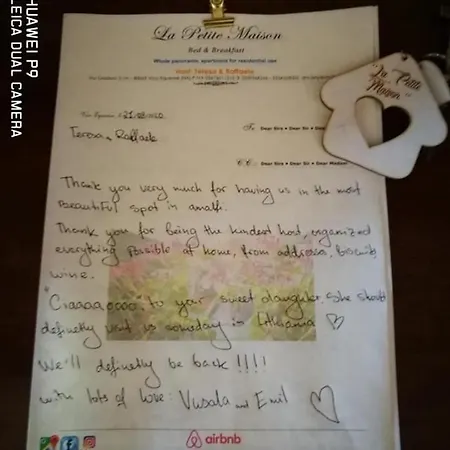 HUAWEI P9
LEICA DUAL CAMERA
La Petite Maison
Bed & Breakfast
Whole panoramic apartment for residential use
Host: Teresa & Raffaele
"La Petite
Maison"
21/08/2020
To Dear Sir • Dear Sir • Dear
Teresa & Raffaele
C.C. Dear Sir • Dear Sir • Dear Madam
Thank you very much for having us in the most
Beautiful spot in amalfi.
Thank you for being the kindest host, organized
everything possible at home, from address, biscuits
wine.
"Ciaaaaoooo" to your sweet daughter. She should
definetly visit us someday in Lithuania ♡
We'll definetly be back !!!!
with lots of love: Vusala and Emil ♡
airbnb